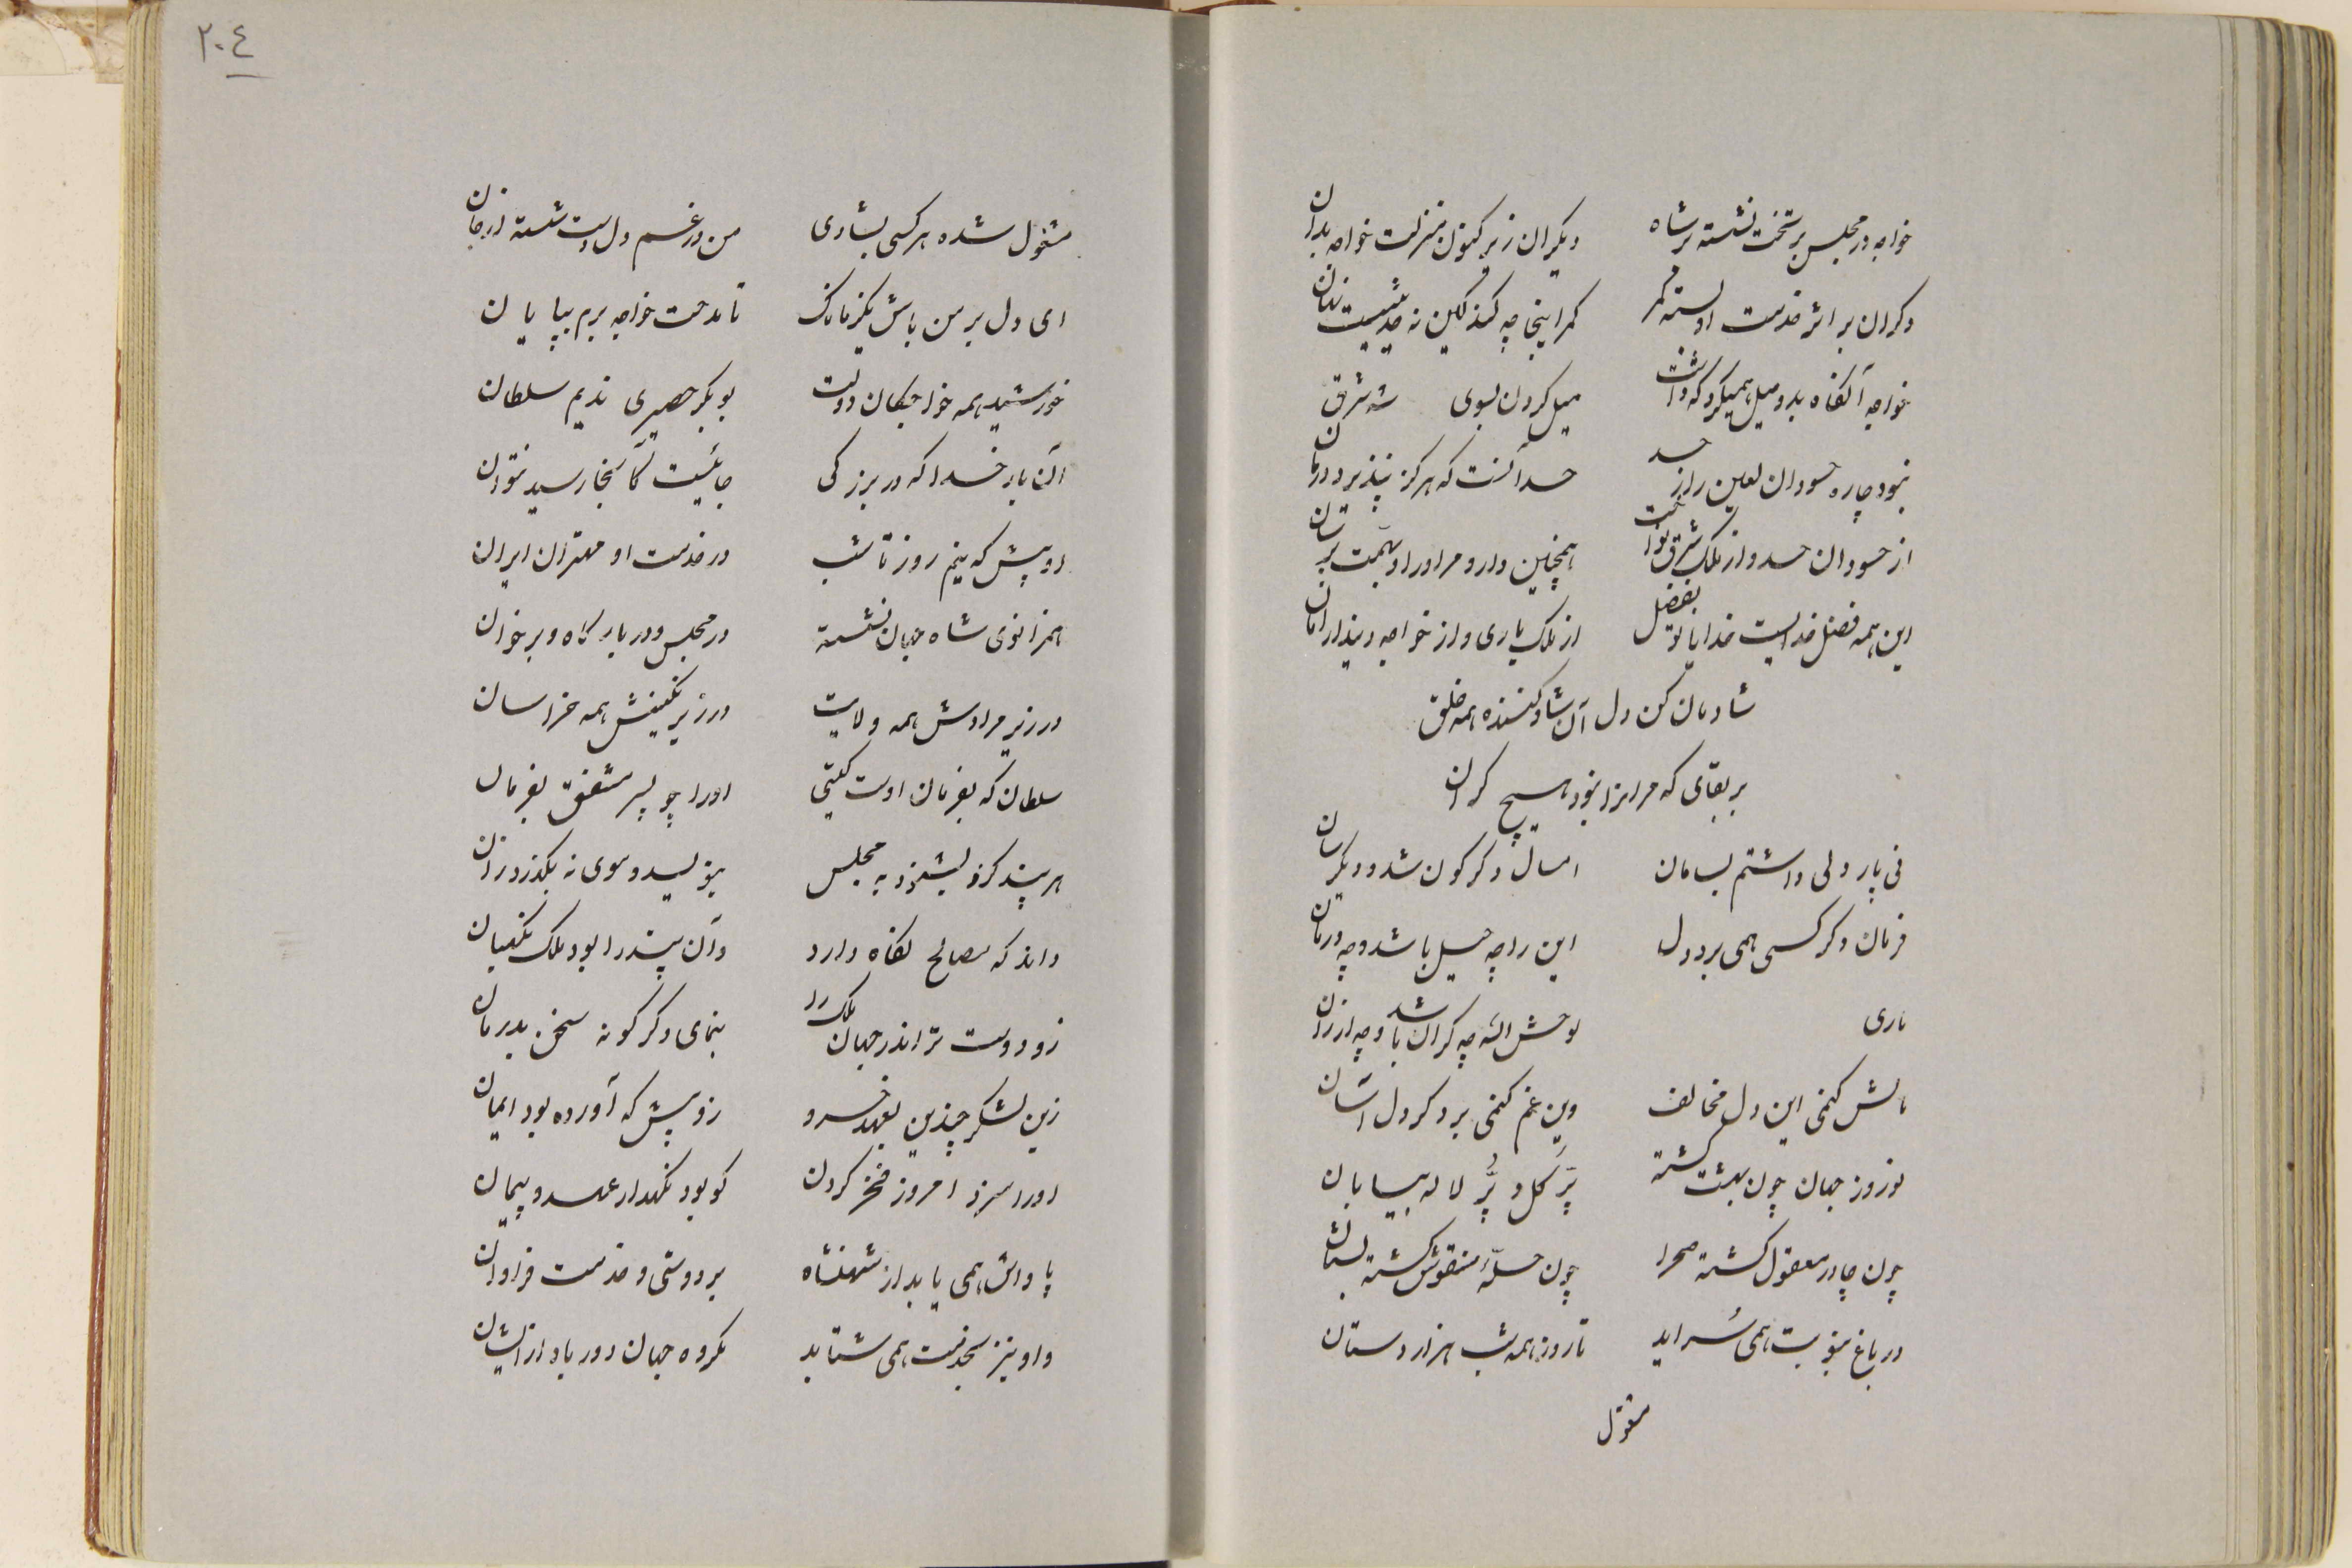 خواجه در مجلس بر تخت نشسته بر شاه    دیگران زیر کنون منزلت خواجه بدان
دکران بر اثر خدمت او بسته کمر    کمر اینجا چه کند لیکن نه حدیثیست نهان
خواجه آنگاه بدو میل همیکرد که داشت    میل کردن بسوی شه شرق
نبود چاره حسودان لعین را ز حسد    حسد آنست که هرگز نپذیرد درمان
از حسودان حسد و از ملک شرق نواخت    همچنین دارد مر او را و بهمت برسان
این همه فضل خدایست خدایا تو بفضل    از ملک یاری و از خواجه و بیذار امان
شادمان کن دل آن شاد کننده همه خلق
بر بقائی که مر انرا نبود هیچ کران
نی پار دلی داشتم بسامان    امسال دکرکون شد و دیکرسان
فرمان دکر کسی همی برد دل    این را چه حیل باشد و چه درمان
باری    لوحش الله چه کران باشد و چه ارزان
نالش کنمی این دل مخالف    وین غم کنمی بر دکر دل آسان
نوروز جهان چون بهشت گشته    پُر گل و پُر لاله بیابان
چون چادر مصقول گشته صحرا    چون حلّهٔ منقوش گشته بستان
در باغ بنوبت همی سُراید    تا روز همه شب هزار دستان
مشغول
٢٠٤
مشغول شده هر کسی بشادی    من در غم دل دست شسته از جان
ای دل بر من باش یکزمانک    تا مدحت خواجه برم بپایان
خورشید همه خواجکان دولت    بوبکر حصیری ندیم سلطان
آن بار خدا که در بزرگی    جائیست کآنجا رسید نتوان
او پیش که بینم روز تا شب    در خدمت او مهتران ایران
همزانوی شاه جهان نشسته    در مجلس و در بارگاه و بر خوان
در زیر مرادش همه ولایت    در زیر نگینش همه خراسان
سلطان که بفرمان اوست کیتی    او را چو پسر مشفق بفرمان
هر پند کزو بشنود به مجلس    بنویسد و موی نه بکذرد زان
داند که مصالح نگاه دارد    وآن پند را بود ملک نکهبان
زو دوست تر اندر جهان ملک را    بنمای دکرکونه سخن بدرمان
زین لشکر چندین بعهد خسرو    زو پیش که آورده بود ایمان
او را سزد امروز فخر کردن    کو بود نکهدار عهد و پیمان
پاداش همی یابد از شهنشاه    بر دوستی و خدمت فراوان
و او نیز بخدمت همی شتابد    مکروه جهان دور باد از ایشان